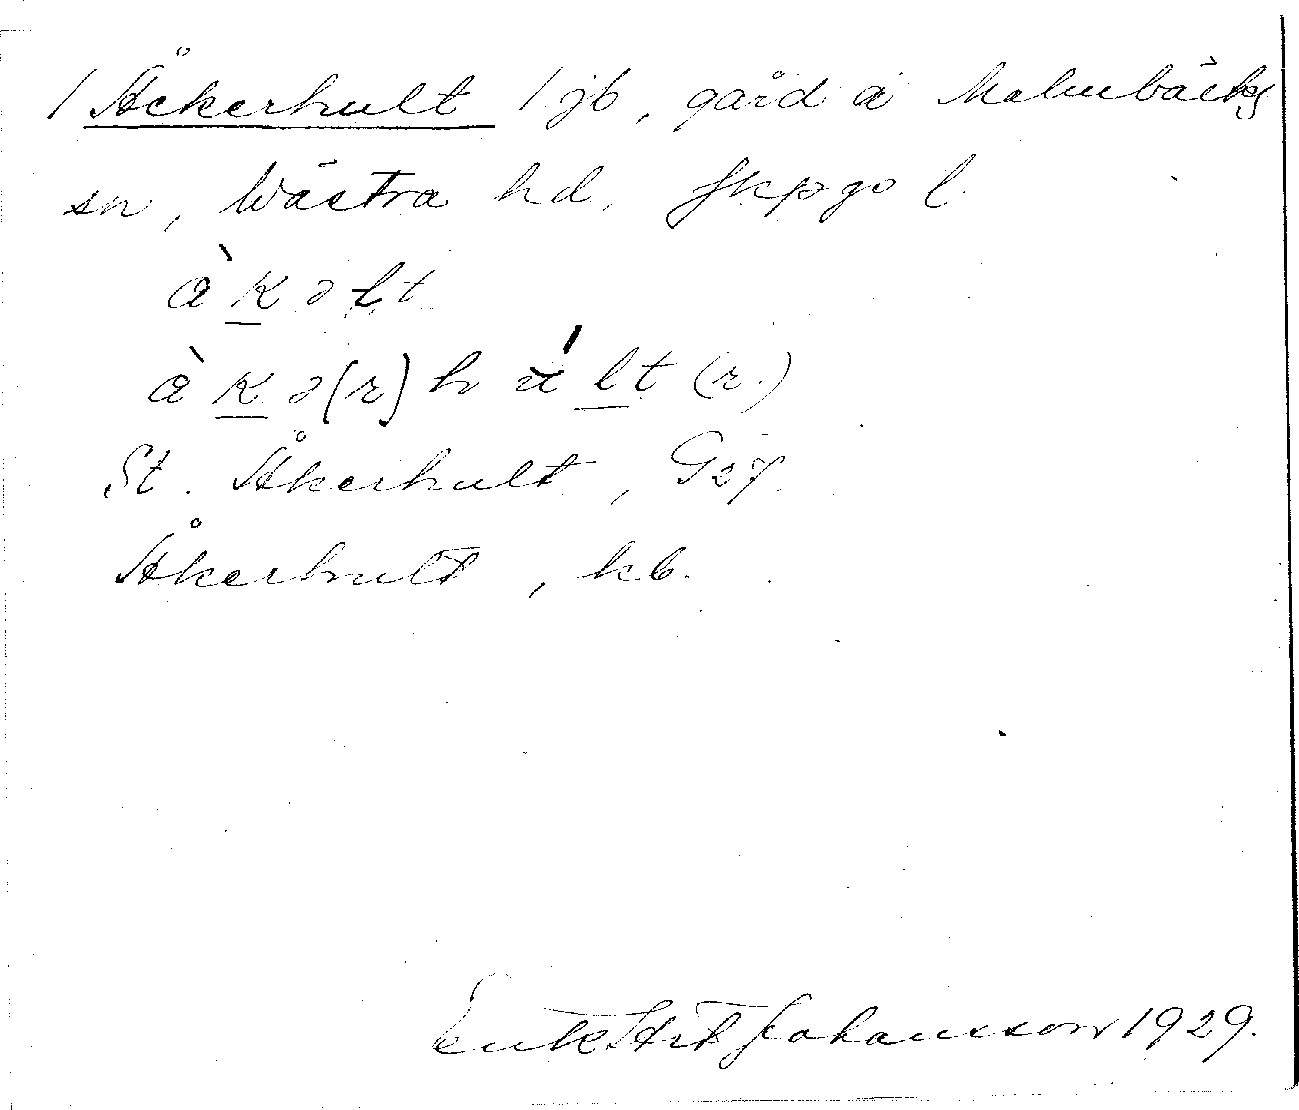 / Åkerhult / jb, gård i Malmbäcks
sn, Västra hd, Jkpgs l.
à k ə l t
à k ə (r) h ú l t (r)
St. Åkerhult, G27
Åkerhult, kb.
Johansson 1929.